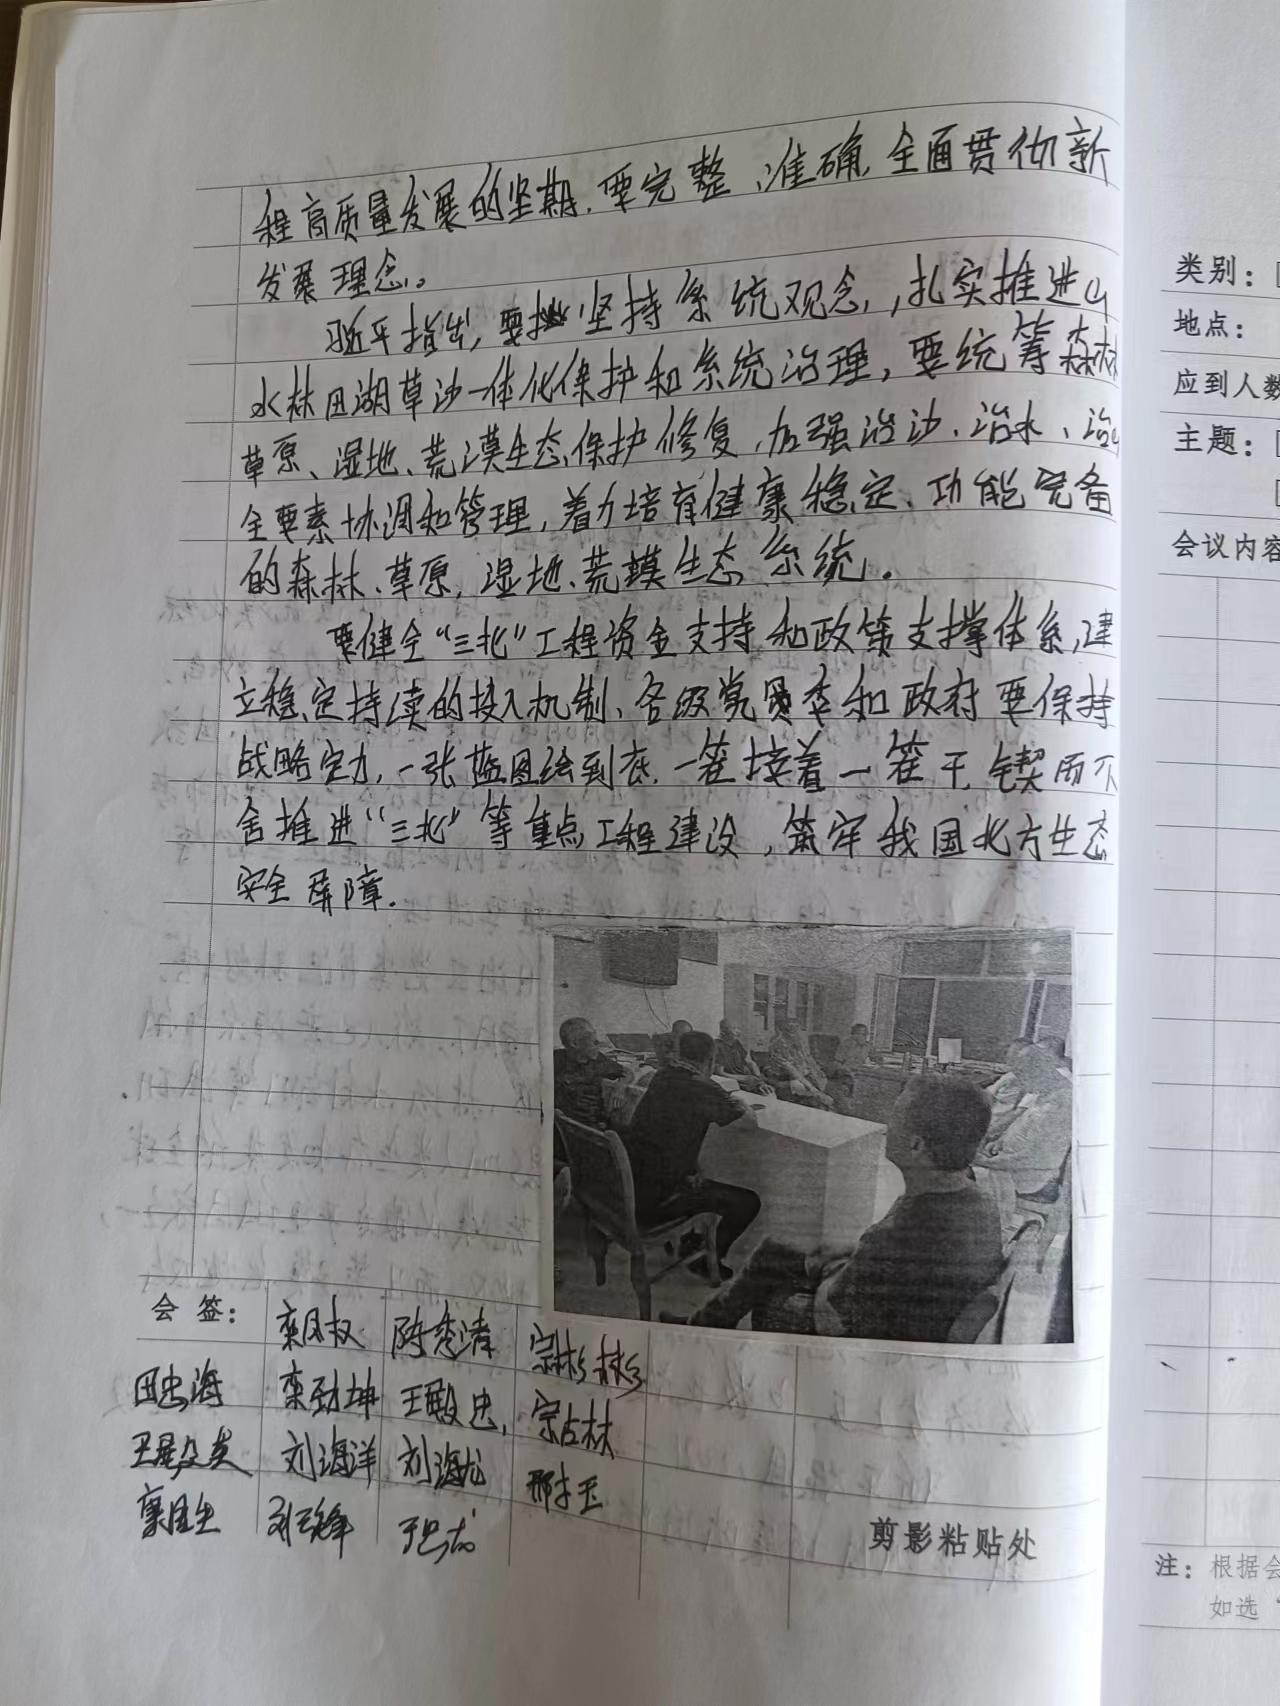 程高质量发展的坚期.要完整、准确.全面贯彻新
发展理念。
习近平指出,要坚持系统观念,扎实推进山
水林田湖草沙一体化保护和系统治理,要统筹森林
草原、湿地、荒漠生态保护修复.加强治沙、治水、治山
全要素协调和管理,着力培育健康稳定、功能完备
的森林、草原,湿地、荒漠生态系统.
要健全“三北”工程资金支持和政策支撑体系,建
立稳定持续的投入机制、各级党委和政府要保持
战略定力,一张蓝图绘到底.一茬接着一茬干,锲而不
舍推进“三北”等重点工程建设,筑牢我国北方生态
安全屏障.
会签:
栾凤权 陈秀清
田忠海 栾劲坤 王殿忠 宗占林
刘海洋 刘海龙 邢才玉
剪影粘贴处
类别:
地点:
应到人数
主题:
会议内容
注:根据会
如选“